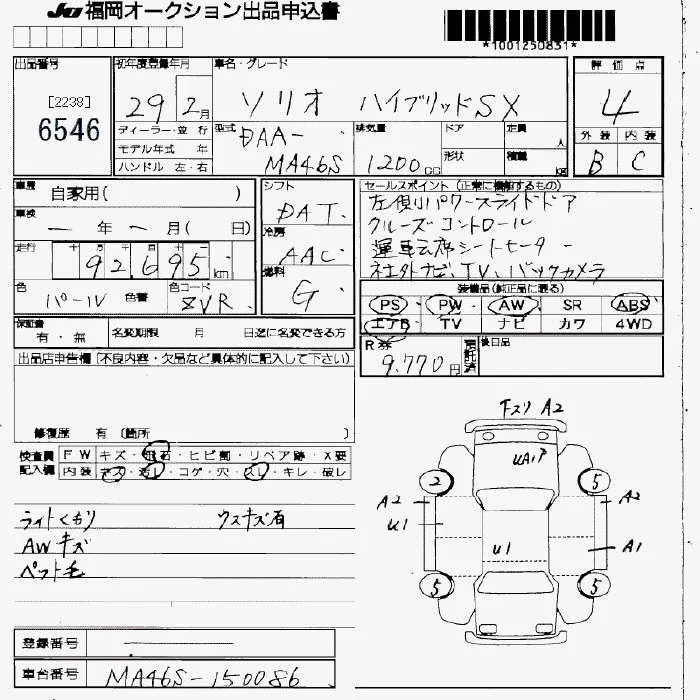 JU 福岡オークション出品申込書
*1001250831*
出品番号
[2238]
6546
初年度登録年月
29 2月
車名・グレード
ソリオ ハイブリッドSX
評価点
4
外装 内装
B C
ディーラー・並行
モデル年式 年
ハンドル 左・右
型式
DAA-
MA46S
排気量
1200cc
ドア
形状
定員 人
積載 kg
車歴
自家用( )
車検
― 年 ― 月( 日)
走行
十 万 千 百 十 一
92,695 km
色
パール
色替
色コード
ZVR
シフト
DAT
冷房
AAC
燃料
G
セールスポイント (正常に機能するもの)
左側パワースライドドア
クルーズコントロール
運転席シートヒーター
社外ナビ、TV、バックカメラ
装備品(純正品に限る)
PS PW AW SR ABS
エアB TV ナビ カワ 4WD
保証書
有・無
名変期限 月 日迄に名変できる方
R券
9,770円
預託済
後日品
出品店申告欄 [不良内容・欠品など具体的に記入して下さい]
修復歴 有 〔箇所 〕
検査員記入欄
FW キズ・飛石・ヒビ割・リペア跡・X要
内装 キズ・汚レ・コゲ・穴・スレ・キレ・破レ
ライトくもり ウスキズ石
AWキズ
ペット毛
下スリ A2
UAP
2 5
A2 A2
U1
U1 A1
5 5
登録番号
車台番号 MA46S-150086